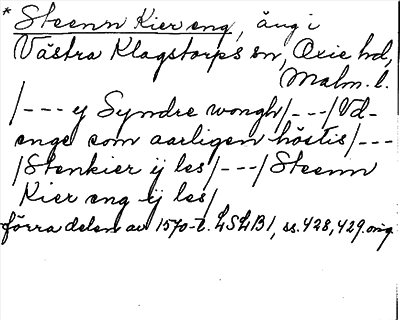 * Steenn Kier eng, äng i
Västra Klagstorps sn, Oxie hd,
Malm. l.
/--- y Syndre wongh/---/Vd-
enge som aarligen höstis/---
/Stenkier ij les/---/Steenn
Kier eng ij les/
förra delen av 1570-t. LSLB1, ss. 428, 429. orig.